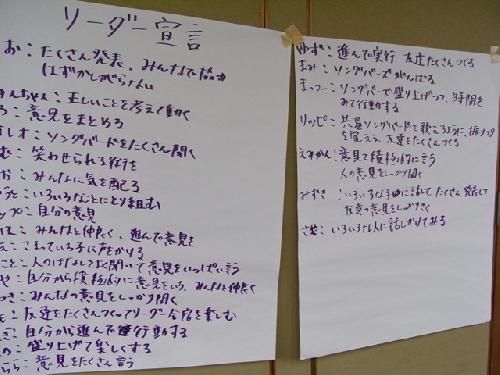 リーダー宣言
お：たくさん発表、みんなで協力
はずかしがらない
ちゃん：正しいことを考えて動く
ろ：意見をまとめる
しオ：ソングバードをたくさん聞く
む：笑わせられる行を
お：みんなに気を配る
いろいろなことにとり組む
ップ：自分の意見
ほ：みんなと仲良く、進んで意見を
こまっている子に声をかける
こと：人のはなしをよく聞いて意見をいっぱい言う
や：自分から積極的に意見をいう、みんなと仲良く
つき：みんなの意見をしっかり聞く
も：友達をたくさんつくってリーダー合宿を楽しむ
ぎ：自分から進んで行動する
の：盛り上げて楽しくする
らら：意見をたくさん言う
ゆず：進んで実行 友達たくさんつくる
まみ：ソングバーズでがんばる
まっつー：ソングバーで盛り上げつつ、時間を
みて行動する
リッピ：共通ソングバードで歌えるように、振りつけ
を覚える 友達をたくさんつくる
えみかん：意見を積極的に言う
人の意見をしっかり聞く
みずき：いろいろな子に話して、たくさん発表して
友達の意見をしっかりきく
さき：いろいろな人に話しかけてみる